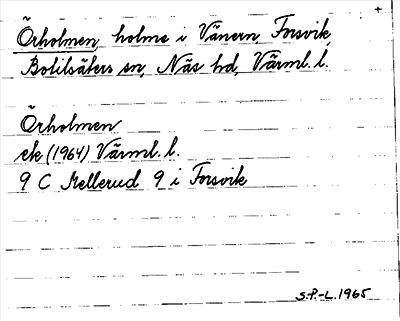 Örholmen, holme i Vänern, Forsvik,
Botilsäters sn, Näs hd, Värml. l.
Örholmen
ek (1964) Värml. l.
9 C Mellerud 9 i Forsvik
S.P.-L. 1965